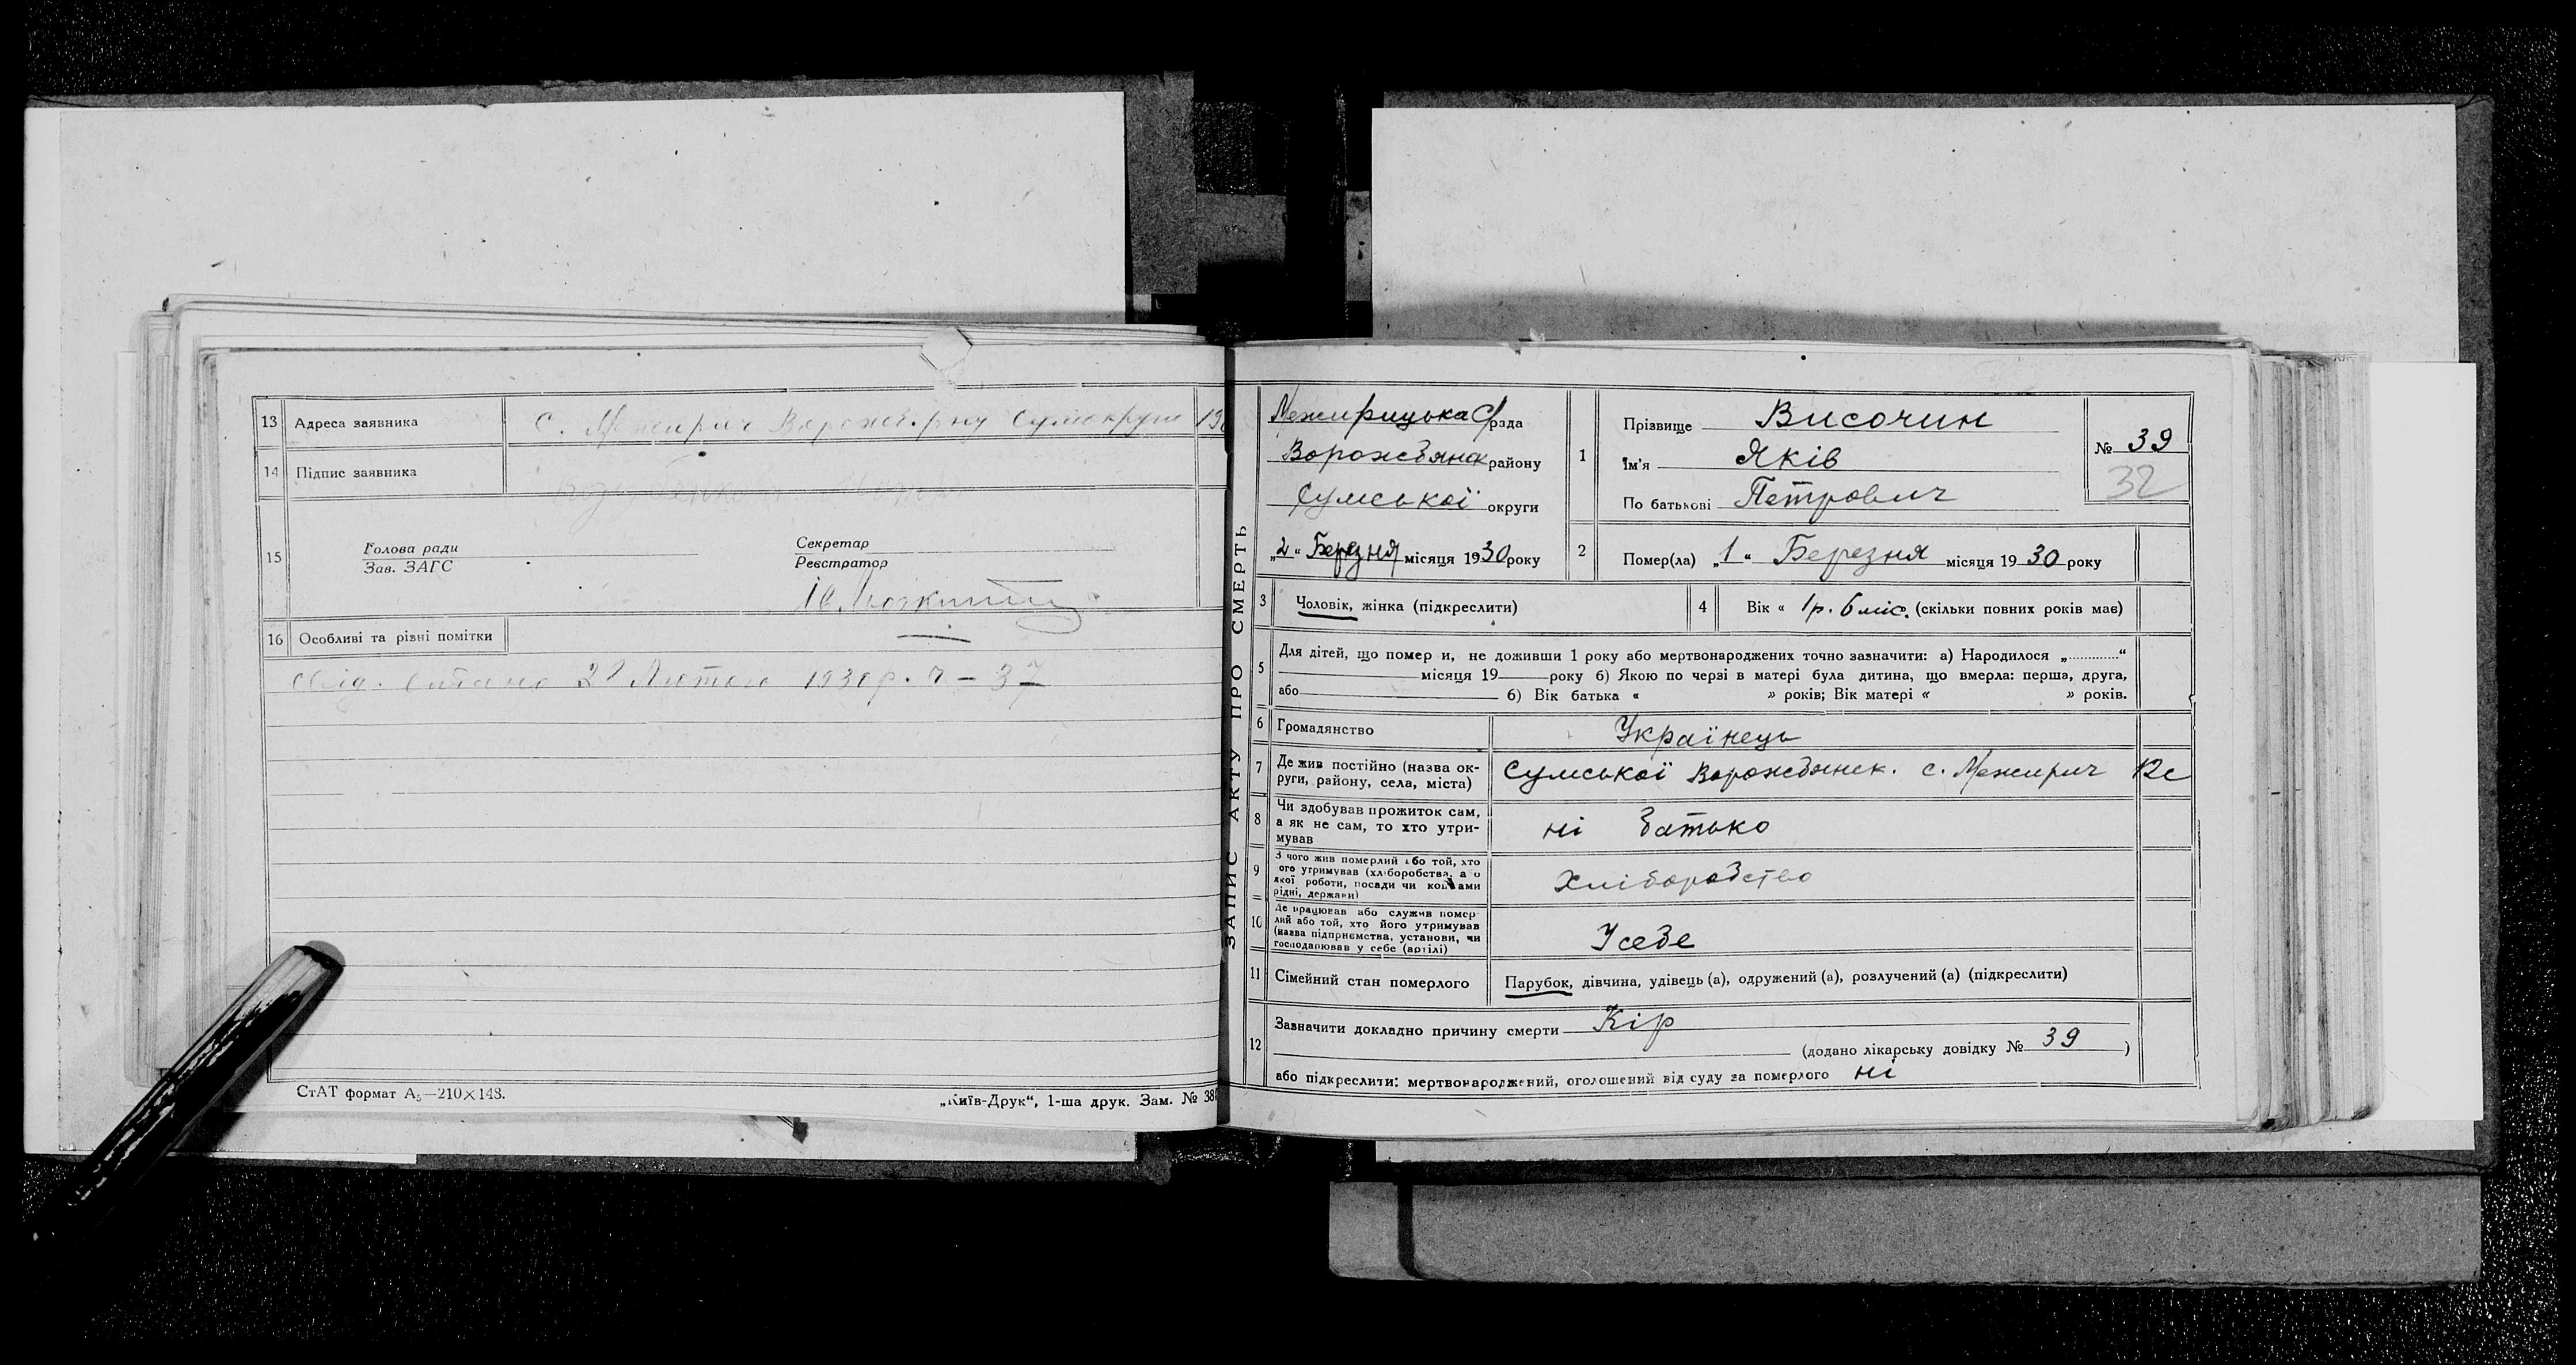 13 Адреса заявника с. Межирич Ворожб. р-ну Сумокруги 19
14 Підпис заявника
15 Голова ради
Зав. ЗАГС
Секретар
Реєстратор
16 Особливі та різні помітки —
Свід. видано 28 Лютого 1930 р. Ч – 37
СтАТ формат А₅—210×148.
„Київ-Друк“, 1-ша друк. Зам. № 38
ЗАПИС АКТУ ПРО СМЕРТЬ
Межирицька С/рада
Ворожбянськ району
Сумської округи
„2“ Березня місяця 1930 року
1 Прізвище Височин
Ім'я Яків
По батькові Петрович
№ 39
32
2 Помер(ла) „1“ Березня місяця 1930 року
3 Чоловік, жінка (підкреслити)
4 Вік « 1 р. 6 міс. (скільки повних років має)
5 Для дітей, що помер и, не доживши 1 року або мертвонароджених точно зазначити: а) Народилося „.............“
місяця 19 року б) Якою по черзі в матері була дитина, що вмерла: перша, друга,
або 6) Вік батька « » років; Вік матері « » років.
6 Громадянство Українець
7 Де жив постійно (назва ок-
руги, району, села, міста) Сумської Ворожбянськ. с. Межирич
8 Чи здобував прожиток сам,
а як не сам, то хто утри-
мував ні батько
9 З чого жив померлий або той, хто
ого утримував (хліборобства, а о
якої роботи, посади чи коштами
рідні, держави) Хліборобство
10 Де працював або служив помер-
лий або той, хто його утримував
(назва підприємства, установи, чи
господарював у себе (артілі) У себе
11 Сімейний стан померлого Парубок, дівчина, удівець (а), одружений (а), розлучений (а) (підкреслити)
12 Зазначити докладно причину смерти Кір
(додано лікарську довідку № 39 )
або підкреслити: мертвонароджений, оголошений від суду за померлого ні